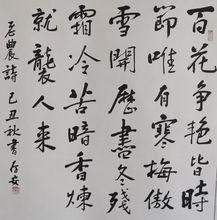 百花争艳皆时
節唯有寒梅傲
雪開歷盡冬殘
霜冷苦暗香煉
就襲人来
石農詩己丑秋書